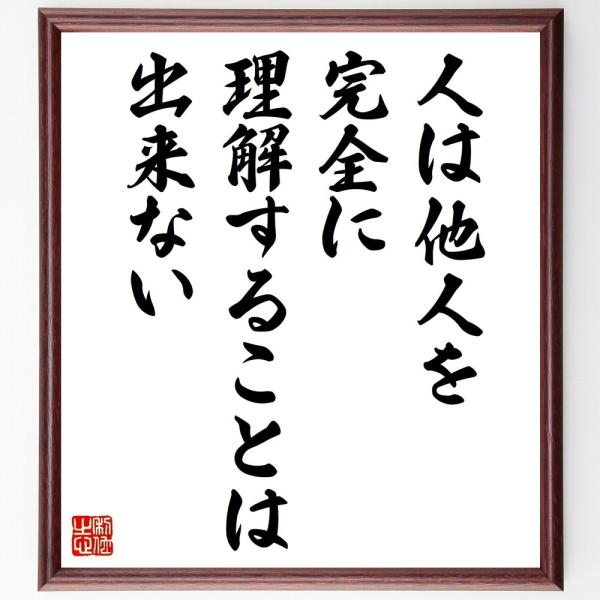 人は他人を
完全に
理解することは
出来ない